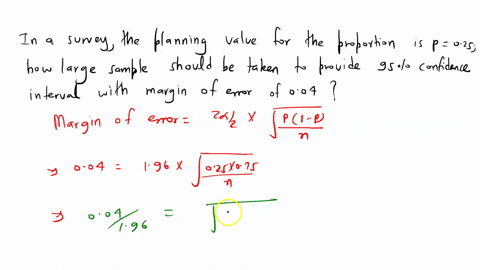 In a survey, the planning value for the proportion is P = 0.25,
how large sample should be taken to provide 95% confidence
interval with margin of error of 0.04 ?
Margin of error = Zα/2 × √P(1-P)/n
⇒ 0.04 = 1.96 × √0.25×0.75/n
⇒ 0.04/1.96 = √